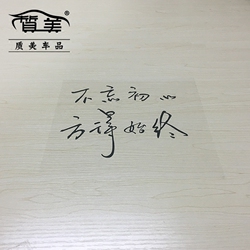 質美
质美车品
不忘初心
方得始终